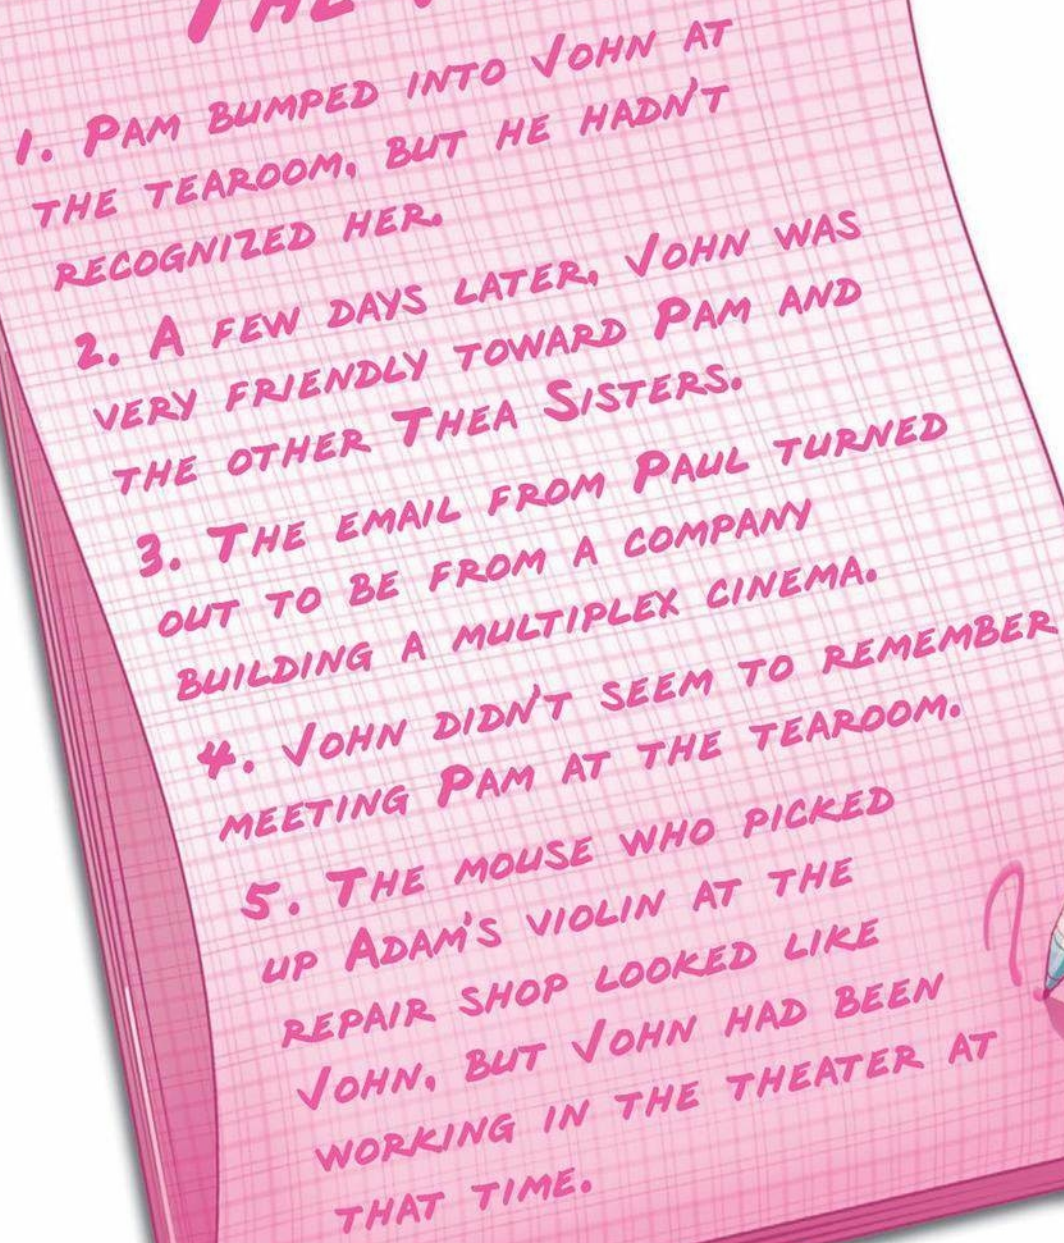 THE
1. PAM BUMPED INTO JOHN AT
THE TEAROOM, BUT HE HADN'T
RECOGNIZED HER.
2. A FEW DAYS LATER, JOHN WAS
VERY FRIENDLY TOWARD PAM AND
THE OTHER THEA SISTERS.
3. THE EMAIL FROM PAUL TURNED
OUT TO BE FROM A COMPANY
BUILDING A MULTIPLEX CINEMA.
4. JOHN DIDN'T SEEM TO REMEMBER
MEETING PAM AT THE TEAROOM.
5. THE MOUSE WHO PICKED
UP ADAM'S VIOLIN AT THE
REPAIR SHOP LOOKED LIKE
JOHN, BUT JOHN HAD BEEN
WORKING IN THE THEATER AT
THAT TIME.